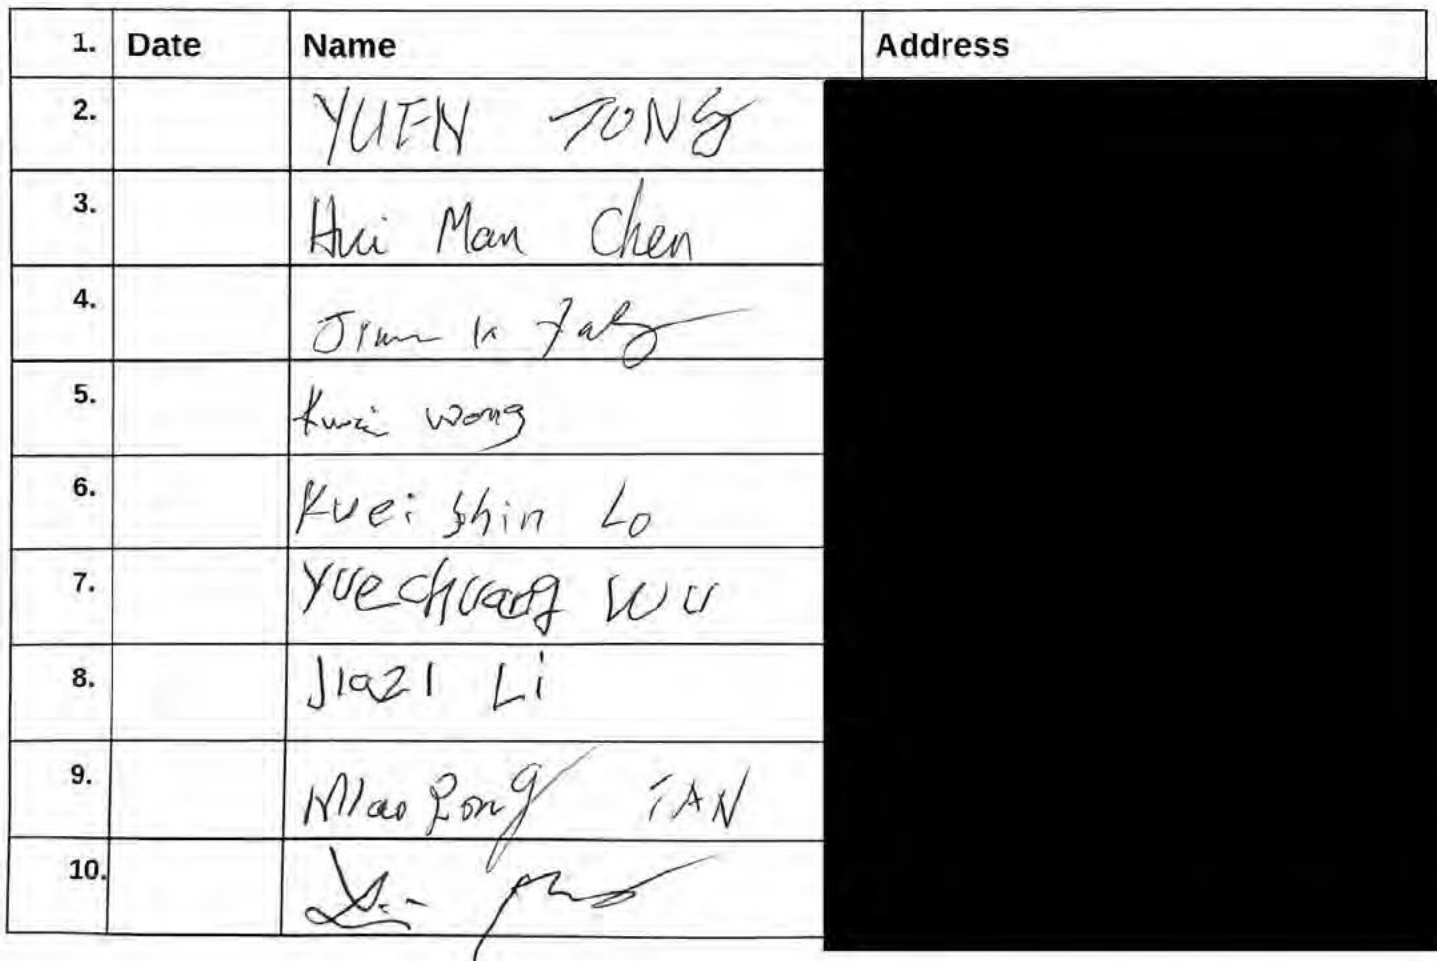 1. Date Name Address
2. YUEN TONG
3. Hui Man Chen
4.
5. Kwai Wong
6. Kuei Shin Lo
7. Yuechuang Wu
8. Jiazi Li
9. Miao Rong TAN
10.